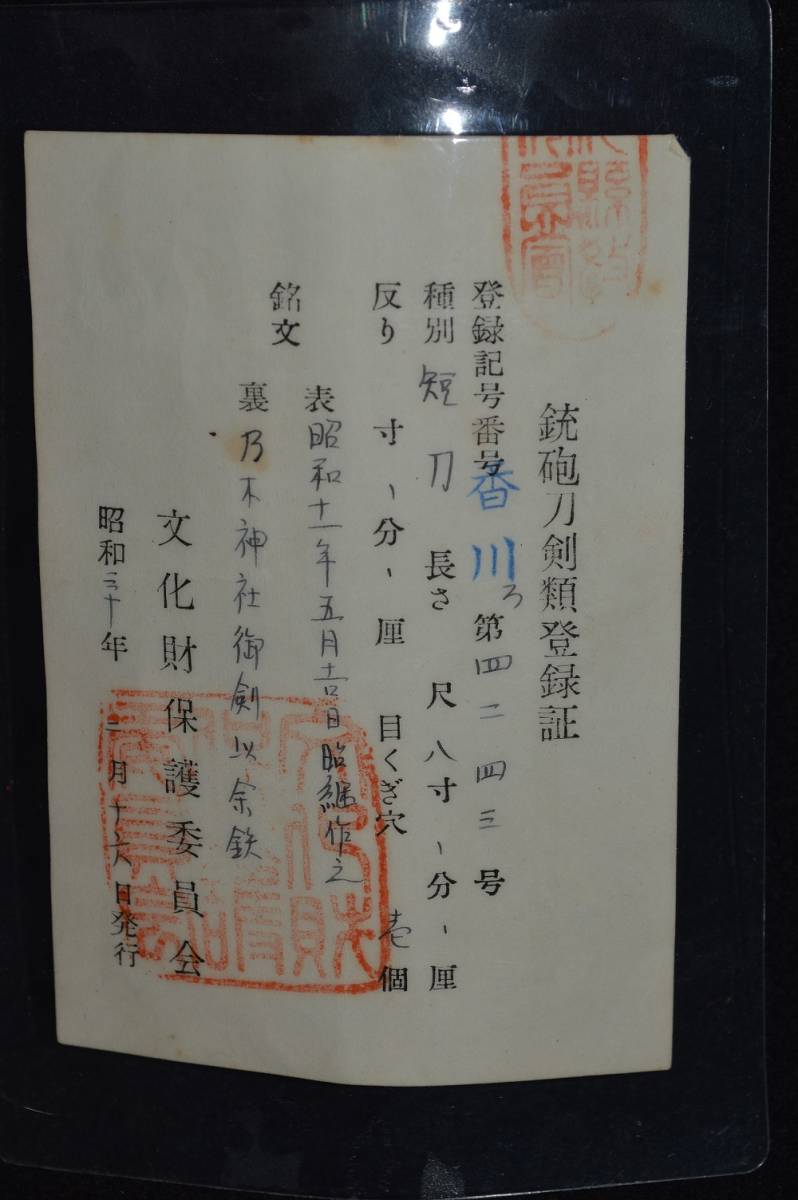 銃砲刀剣類登録証
登録記号番号 香川ろ 第四二四三号
種別 短刀 長さ 尺八寸、分、厘
反り 寸、分、厘 目くぎ穴 壱個
銘文
表 昭和十一年五月吉日昭継作之
裏 乃木神社御剣以余鉄
文化財保護委員会
昭和三十年 二月十六日発行